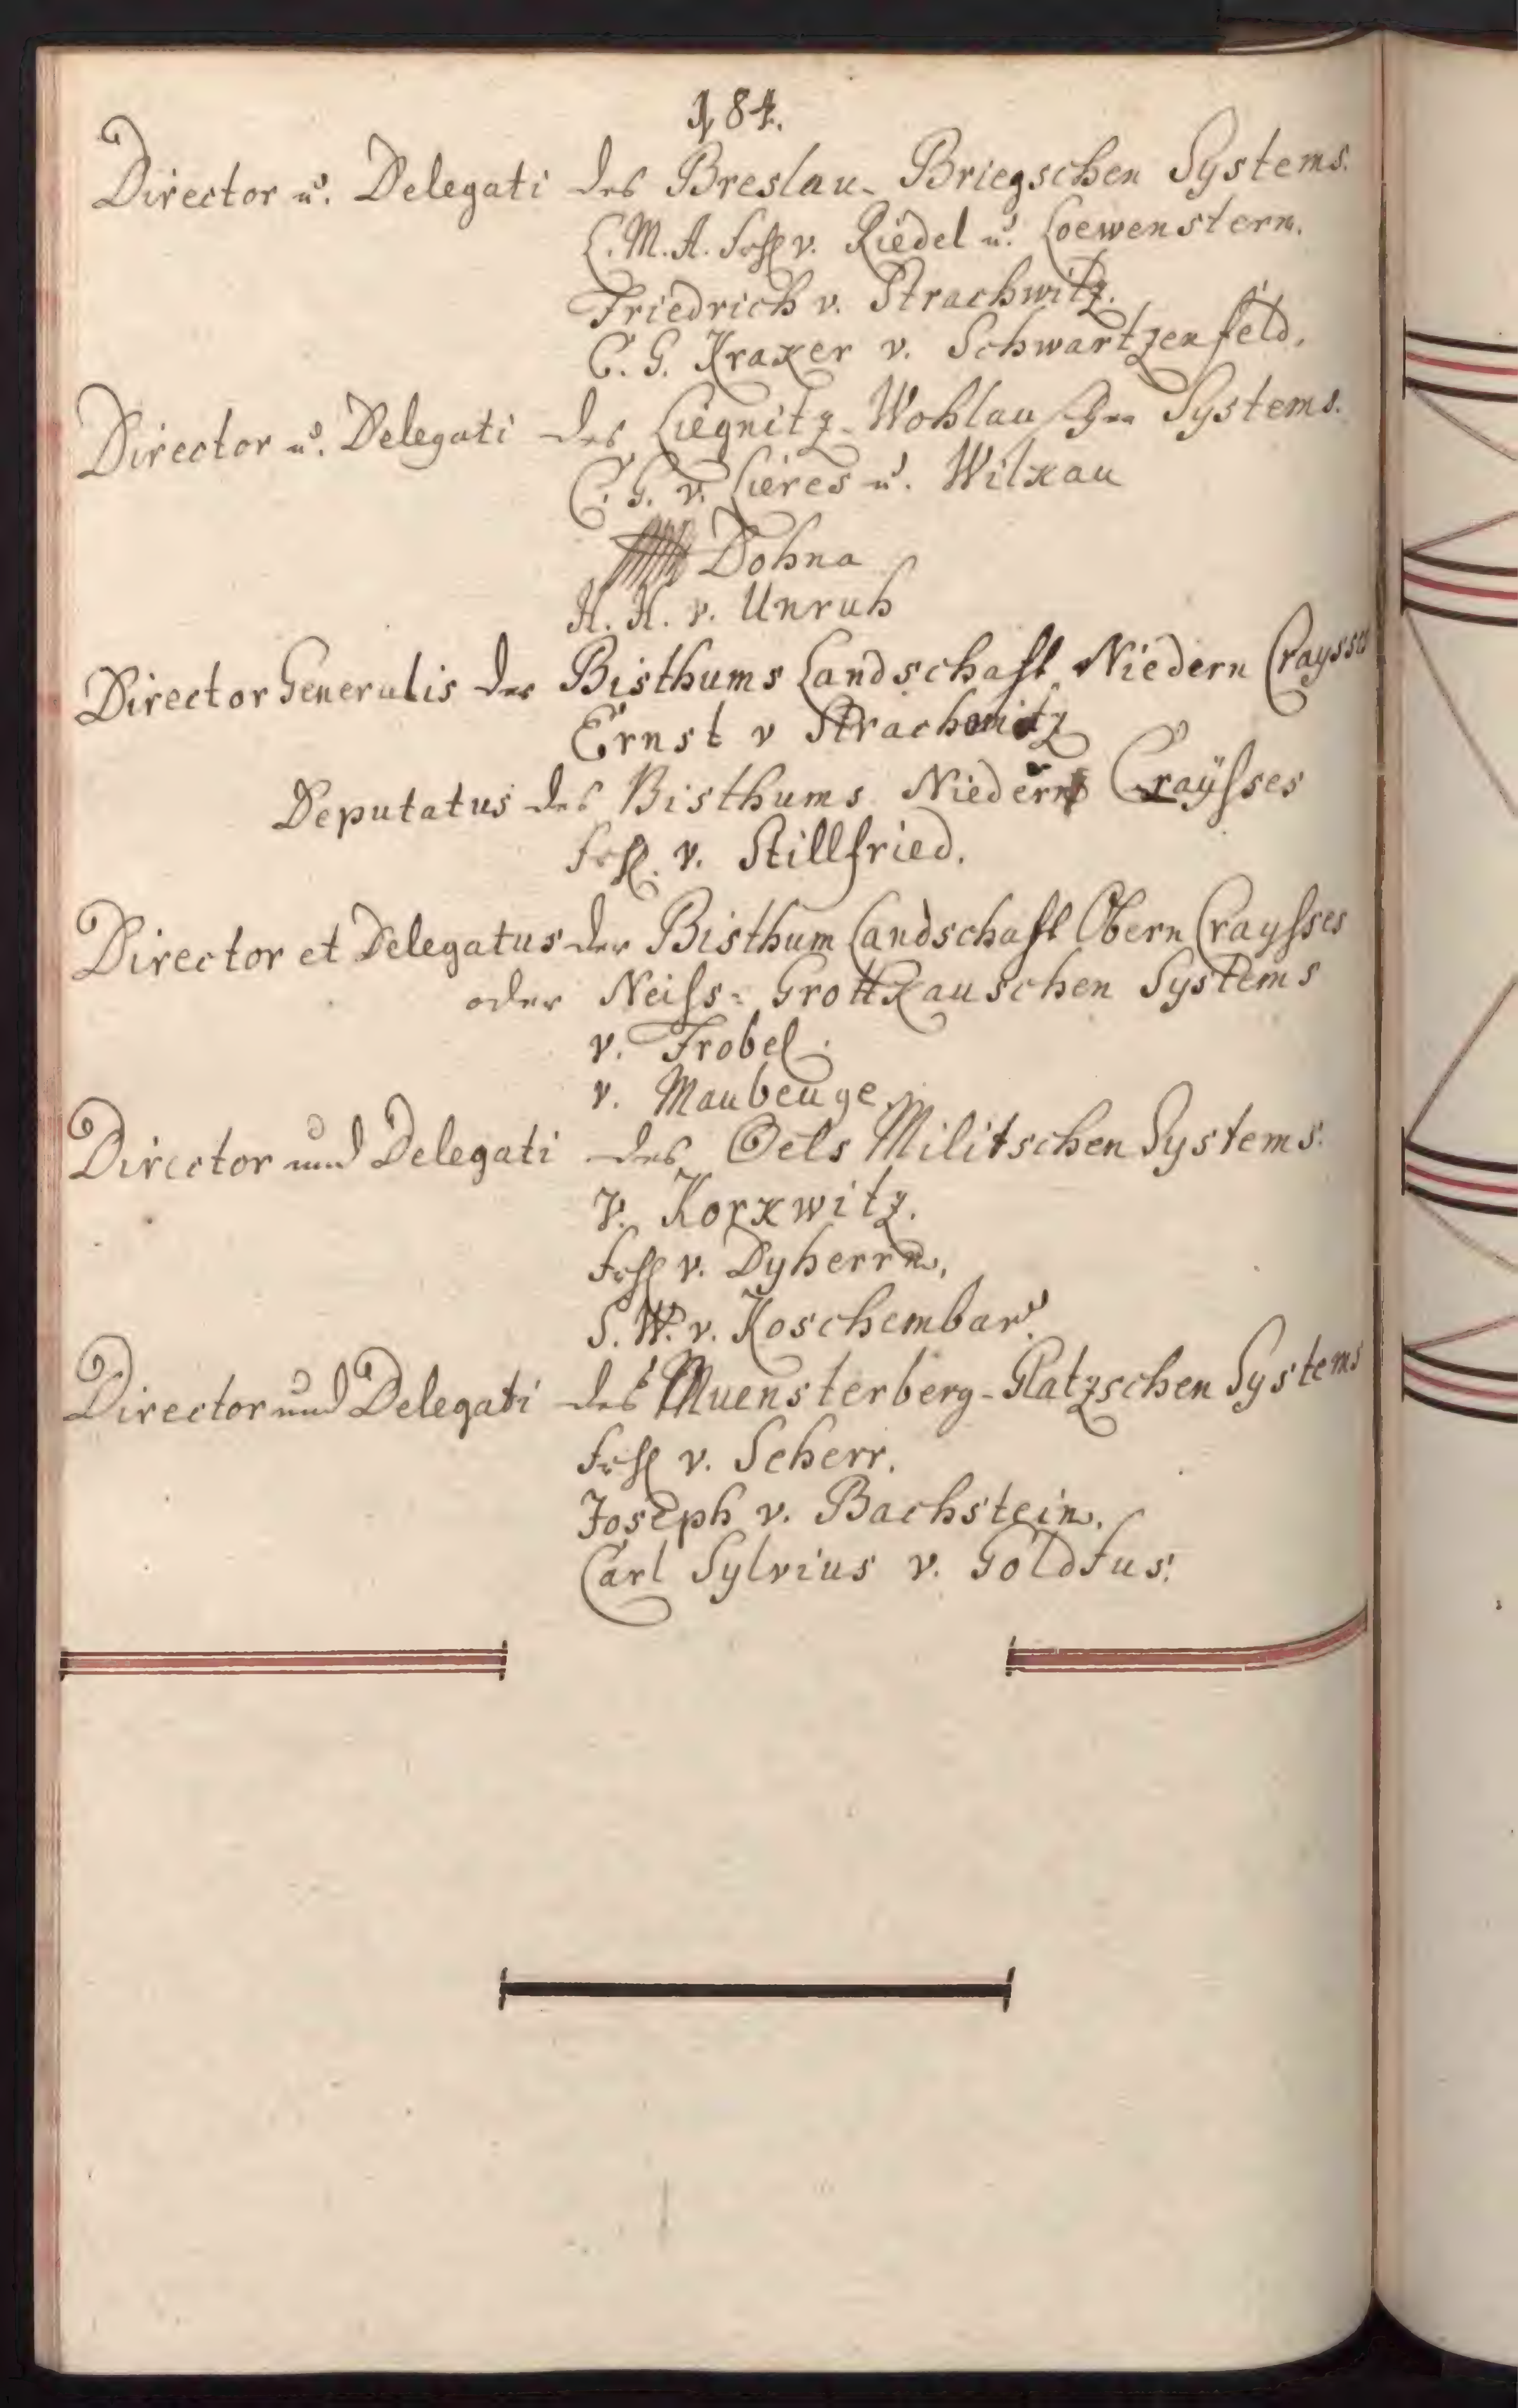 184.
Director u. Delegati des Breslau- Briegschen Systems.
C. M. A. Frh v. Riedel u. Loewenstern.
Friedrich v. Strachwitz.
C. G. Kraker v. Schwartzenfeld.
Director u. Delegati des Liegnitz-Wohlauschen Systems.
C. G. v. Lieres u. Wilkau
Dohna
H. H. v. Unruh
Director Generalis der Bisthums Landschaft Niedern Craysses
Ernst v Strachwitz
Deputatus des Bisthums Niedern Craÿsses
Frh. v. Stillfried.
Director et Delegatus der Bisthum Landschaft Obern Craysses
oder Neiss= Grottkauschen Systems
v. Frobel.
v. Maubeuge.
Director und Delegati des Oels Militschen Systems.
v. Korkwitz.
Frh v. Dyherrn.
S. W. v. Koschembar.
Director und Delegati des Muensterberg-Glatzschen Systems
Frh v. Scherr.
Joseph v. Bachstein.
Carl Sylvius v. Goldfus.